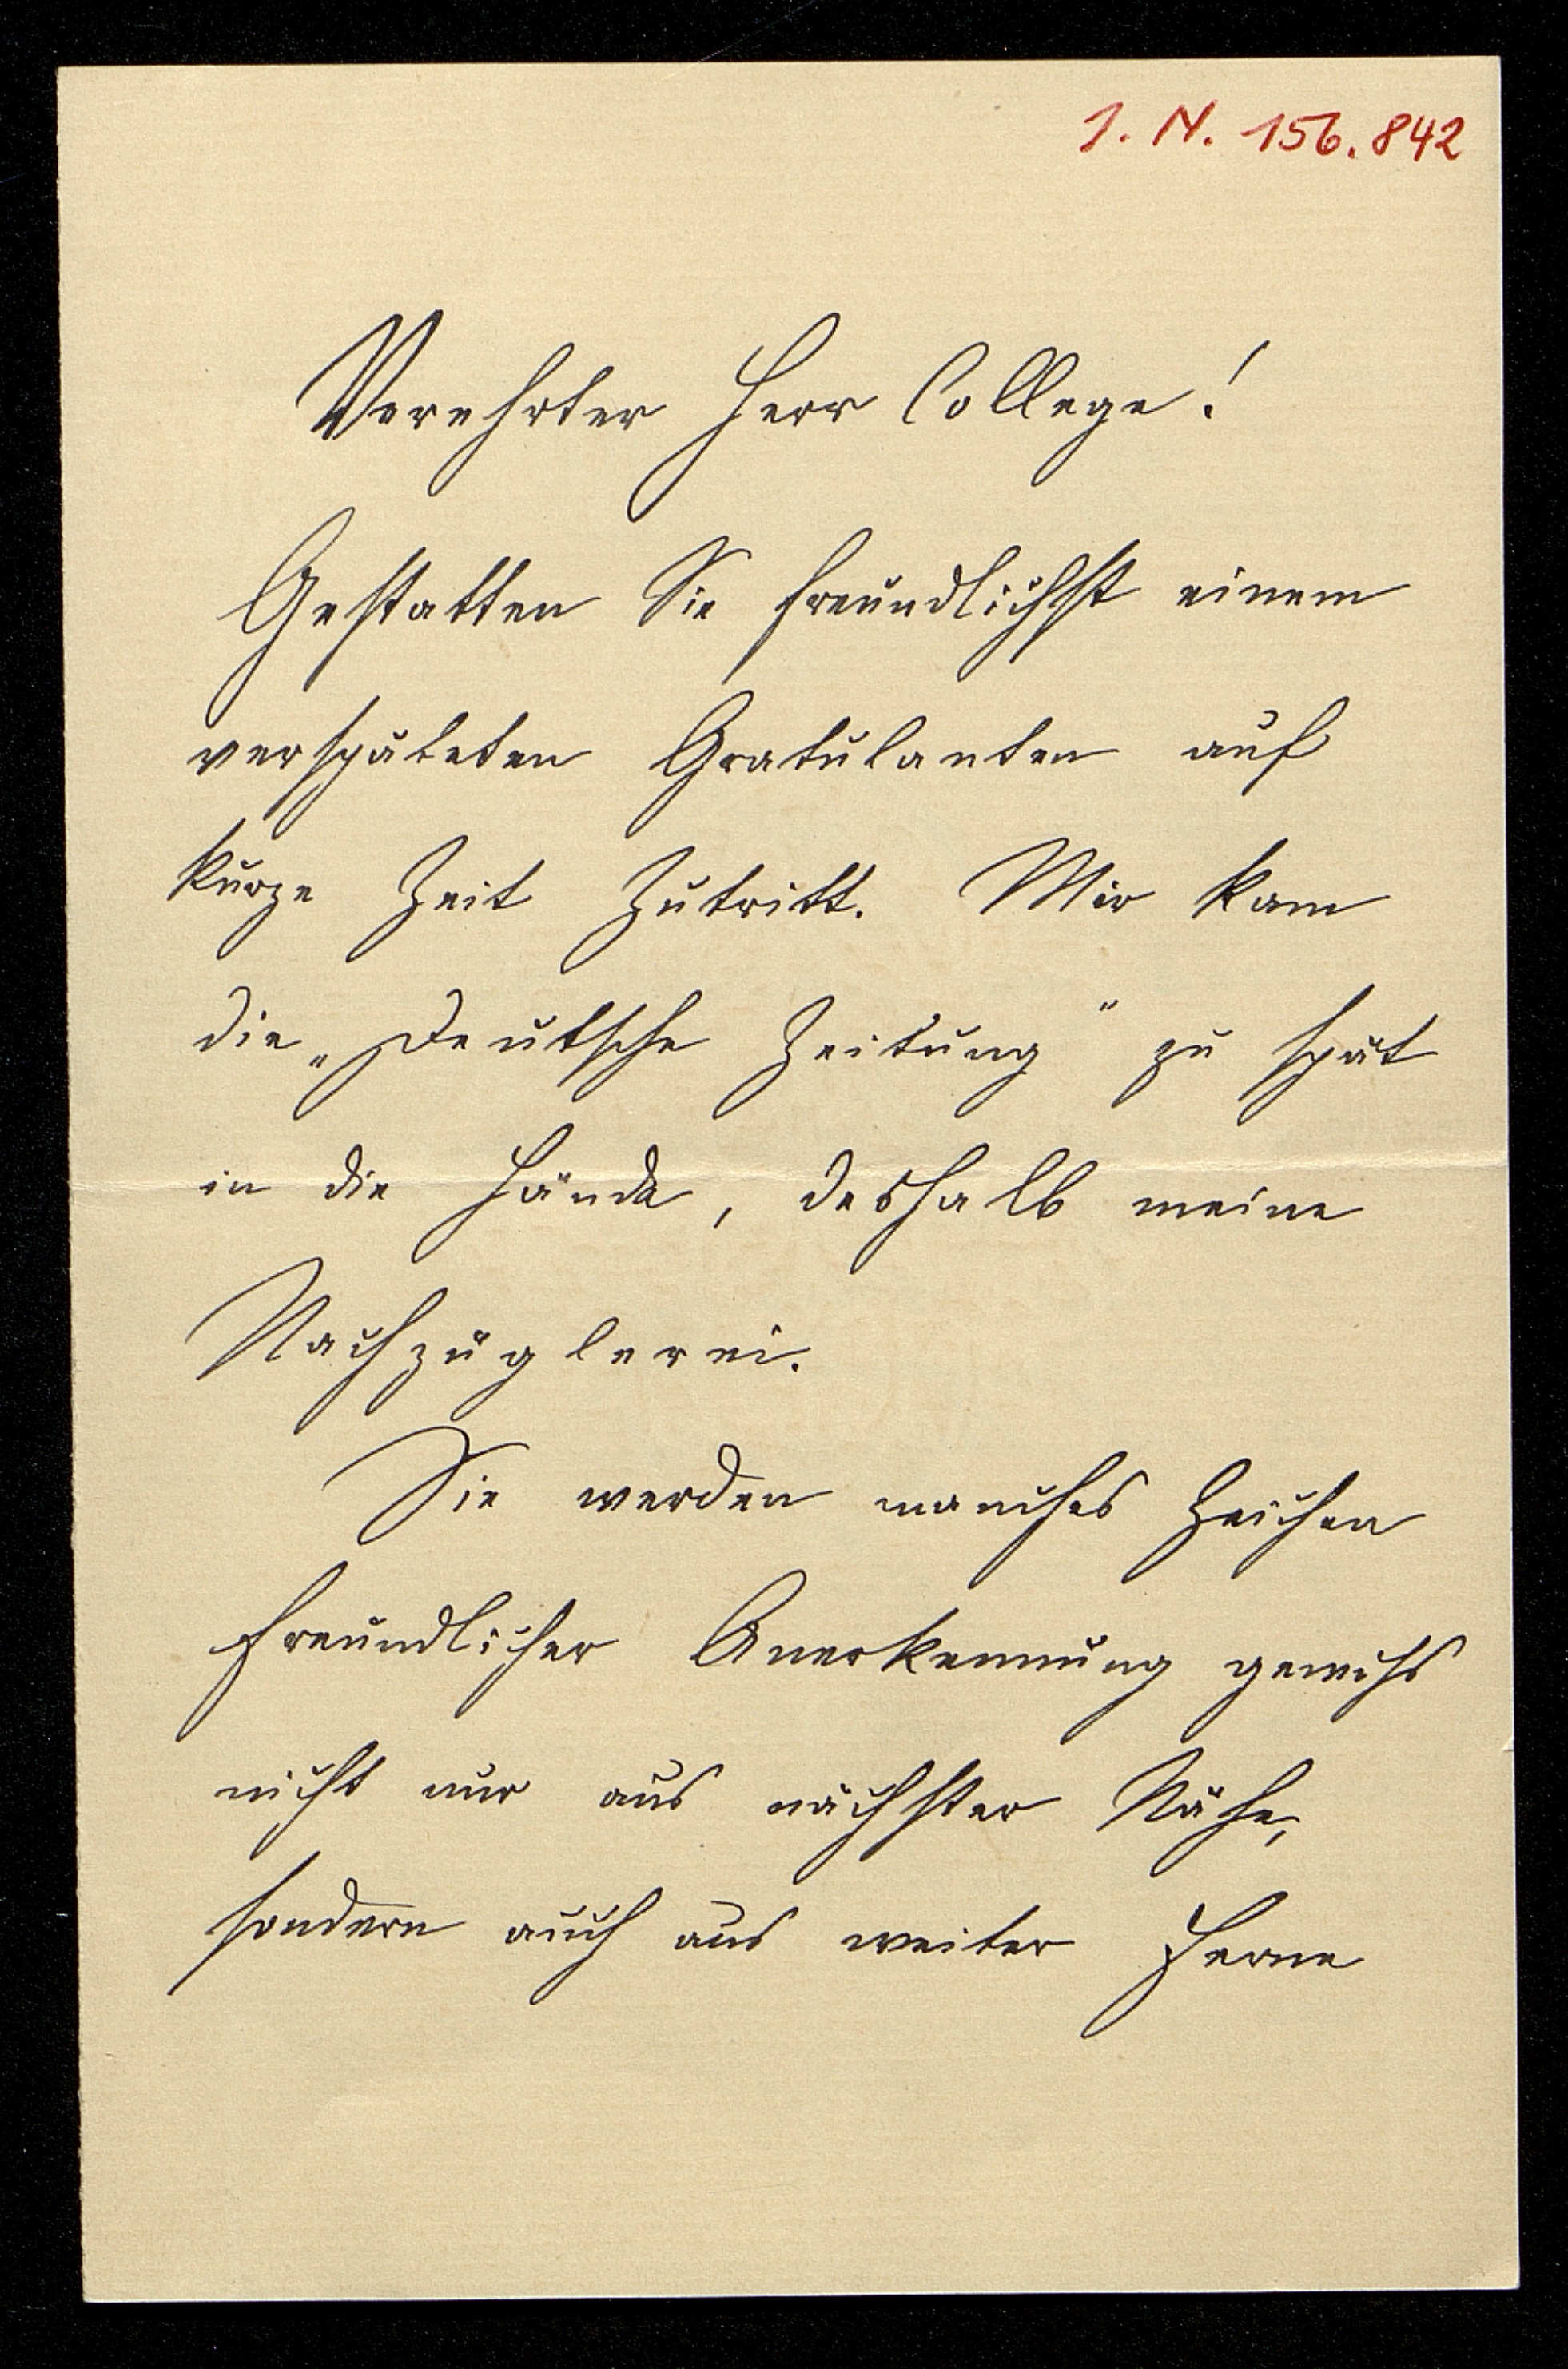 I. N. 156.842
Verehrter Herr College!
Gestatten Sie freundlichst einem
verspäteten Gratulanten auf
kurze Zeit Zutritt. Mir kam
die „Deutsche Zeitung" zu spät
in die Hände, deshalb meine
Nachzüglerei.
Sie werden manches Zeichen
freundlicher Anerkennung gewiß
nicht nur aus nächster Nähe,
sondern auch aus weiter Ferne